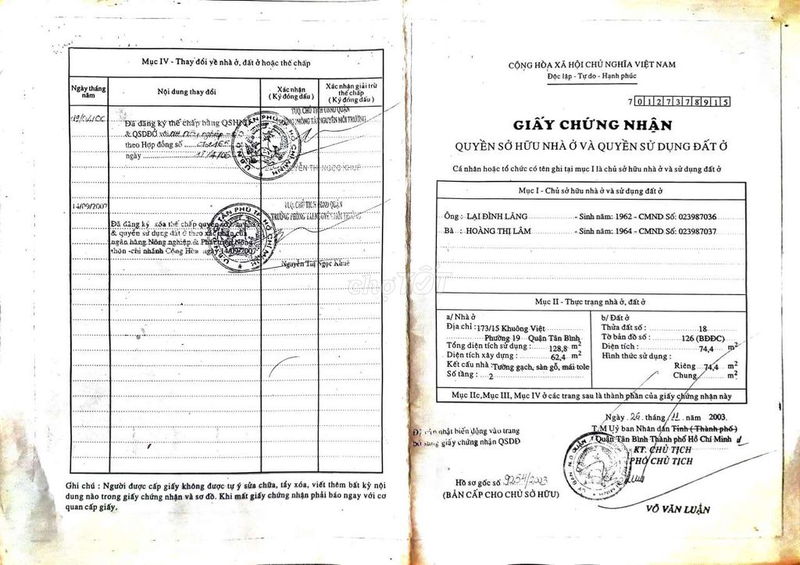 Mục IV - Thay đổi về nhà ở, đất ở hoặc thế chấp
Ngày tháng năm
Nội dung thay đổi
Xác nhận (Ký đóng dấu)
Xác nhận giải trừ thế chấp (Ký đóng dấu)
Đã đăng ký thế chấp bằng QSHNỞ
& QSDĐỞ với
theo Hợp đồng số
ngày
14/09/2007
Đã đăng ký xóa thế chấp quyền
& quyền sử dụng đất ở theo xác nhận của
ngân hàng Nông nghiệp & Phát triển Nông
thôn -chi nhánh Cộng Hòa ngày 14/09/2007
TUQ. CHỦ TỊCH UBND QUẬN
TRƯỞNG PHÒNG TÀI NGUYÊN MÔI TRƯỜNG
Nguyễn Thị Ngọc Khuê
Ghi chú : Người được cấp giấy không được tự ý sửa chữa, tẩy xóa, viết thêm bất kỳ nội
dung nào trong giấy chứng nhận và sơ đồ. Khi mất giấy chứng nhận phải báo ngay với cơ
quan cấp giấy.
chợTỐT
CỘNG HÒA XÃ HỘI CHỦ NGHĨA VIỆT NAM
Độc lập - Tự do - Hạnh phúc
7 0 1 2 7 3 7 8 9 1 5
GIẤY CHỨNG NHẬN
QUYỀN SỞ HỮU NHÀ Ở VÀ QUYỀN SỬ DỤNG ĐẤT Ở
Cá nhân hoặc tổ chức có tên ghi tại mục I là chủ sở hữu nhà ở và sử dụng đất ở
Mục I - Chủ sở hữu nhà ở và sử dụng đất ở
Ông : LẠI ĐÌNH LĂNG - Sinh năm: 1962 - CMND Số: 023987036
Bà : HOÀNG THỊ LÂM - Sinh năm: 1964 - CMND Số: 023987037
Mục II - Thực trạng nhà ở, đất ở
a/ Nhà ở
Địa chỉ : 173/15 Khuông Việt
Phường 19 Quận Tân Bình
Tổng diện tích sử dụng : 128,8 m2
Diện tích xây dựng : 62,4 m2
Kết cấu nhà : Tường gạch, sàn gỗ, mái tole
Số tầng : 2
b/ Đất ở
Thửa đất số : 18
Tờ bản đồ số : 126 (BĐĐC)
Diện tích : 74,4 m2
Hình thức sử dụng :
Riêng 74,4 m2
Chung m2
Mục IIc, Mục III, Mục IV ở các trang sau là thành phần của giấy chứng nhận này
Ngày 26 tháng 11 năm 2003
T.M Uỷ ban Nhân dân Tỉnh ( Thành phố )
Quận Tân Bình Thành phố Hồ Chí Minh
KT. CHỦ TỊCH
PHÓ CHỦ TỊCH
Đã cập nhật biến động vào trang
Bổ sung giấy chứng nhận QSDĐ
Hồ sơ gốc số 9254/2003
(BẢN CẤP CHO CHỦ SỞ HỮU)
VÕ VĂN LUẬN